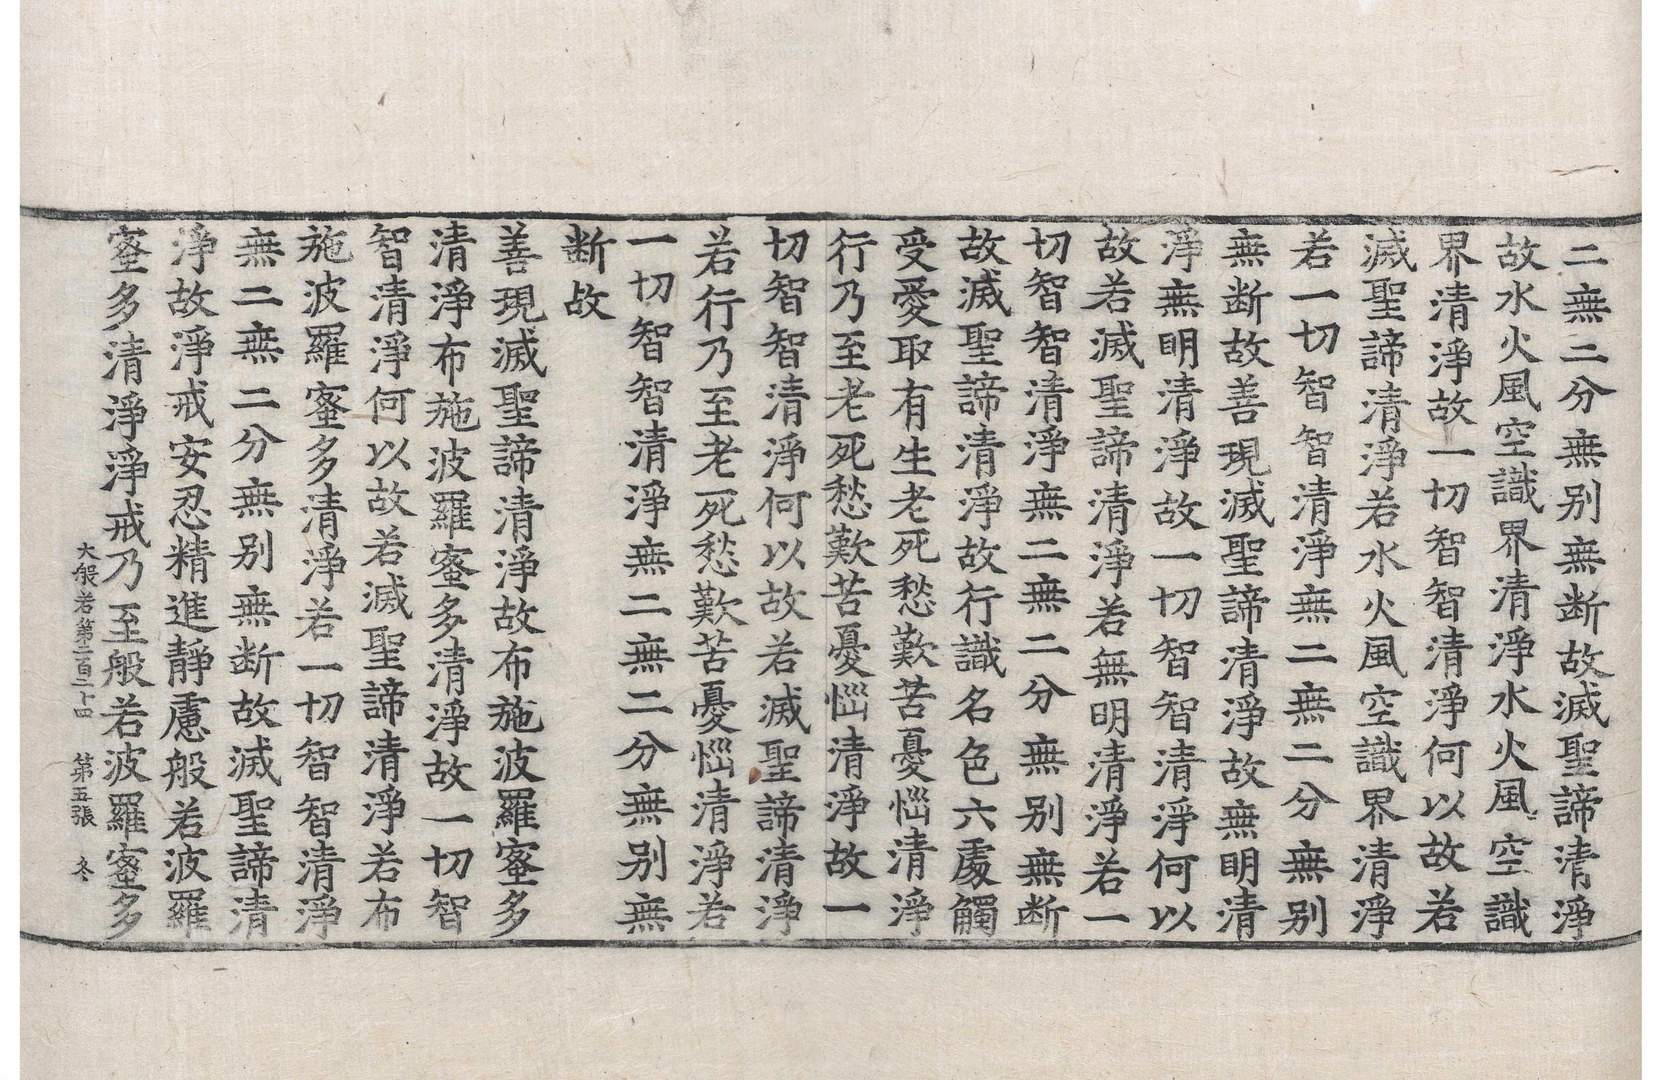 二無二分無別無断故滅聖諦清淨
故水火風空識界清淨水火風空識
界清淨故一切智智清淨何以故若
滅聖諦清淨若水火風空識界清淨
若一切智智清淨無二無二分無別
無断故善現滅聖諦清淨故無明清
淨無明清淨故一切智智清淨何以
故若滅聖諦清淨若無明清淨若一
切智智清淨無二無二分無別無断
故滅聖諦清淨故行識名色六處觸
受愛取有生老死愁歎苦憂惱清淨
行乃至老死愁歎苦憂惱清淨故一
切智智清淨何以故若滅聖諦清淨
若行乃至老死愁歎苦憂惱清淨若
一切智智清淨無二無二分無別無
断故
善現滅聖諦清淨故布施波羅蜜多
清淨布施波羅蜜多清淨故一切智
智清淨何以故若滅聖諦清淨若布
施波羅蜜多清淨若一切智智清淨
無二無二分無別無断故滅聖諦清
淨故淨戒安忍精進靜慮般若波羅
蜜多清淨淨戒乃至般若波羅蜜多
大般若第二百二十四 第五張 冬